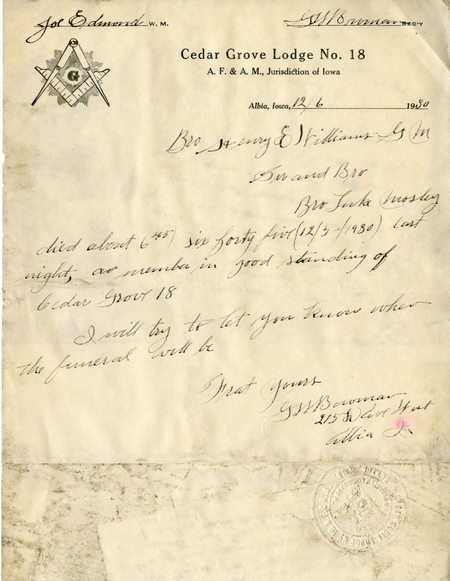 Joe Edmond W. M.
GW Bowman SEC'Y
G
Cedar Grove Lodge No. 18
A. F. & A. M., Jurisdiction of Iowa
Albia, Iowa, 12/6 1930
Bro Henry E Williams G M
Sir and Bro
Bro Mosley
died about 6 45) six forty five (12/5-1930) last
night, as member in good standing of
Cedar Grove 18
I will try to let you know when
the funeral will be
Frat yours
GW Bowman
215 Ave West
Albia Ia